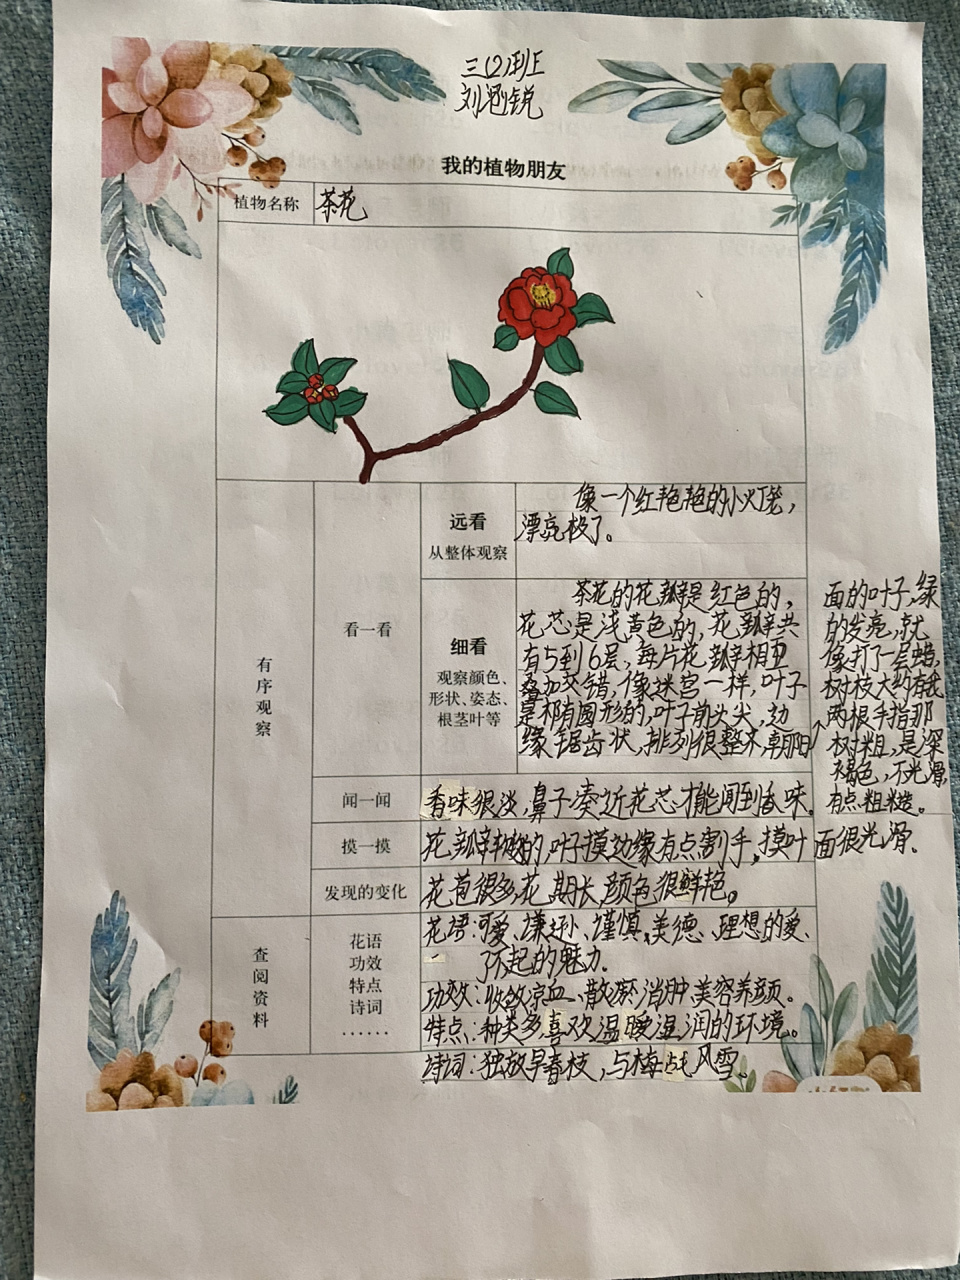 三(2)班
刘
锐
我的植物朋友
植物名称
茶花
有序观察
看一看
远看
从整体观察
像一个红艳艳的小灯笼，
漂亮极了。
细看
观察颜色、
形状、姿态、
根茎叶等
茶花的花瓣是红色的，
花芯是浅黄色的，花瓣共
有5到6层，每片花瓣相互
叠加交错，像迷宫一样，叶子
是椭有圆形的，叶子前头尖，边
缘锯齿状，排列很整齐，朝阳
面的叶子，绿
的发亮，就
像打了一层蜡，
树枝大约有我
两根手指那
树粗，是深
褐色，不光滑，
有点粗糙。
闻一闻
香味很淡，鼻子凑近花芯才能闻到香味。
摸一摸
花瓣软软的，叶子摸边缘有点割手，摸叶面很光滑。
发现的变化
花苞很多，花期长，颜色很鲜艳。
查阅资料
花语
功效
特点
诗词
……
花语：可爱、谦逊、谨慎、美德、理想的爱、
了不起的魅力.
功效：收敛凉血、散瘀消肿、美容养颜。
特点：种类多，喜欢温暖湿润的环境。
诗词：独放早春枝，与梅战风雪。